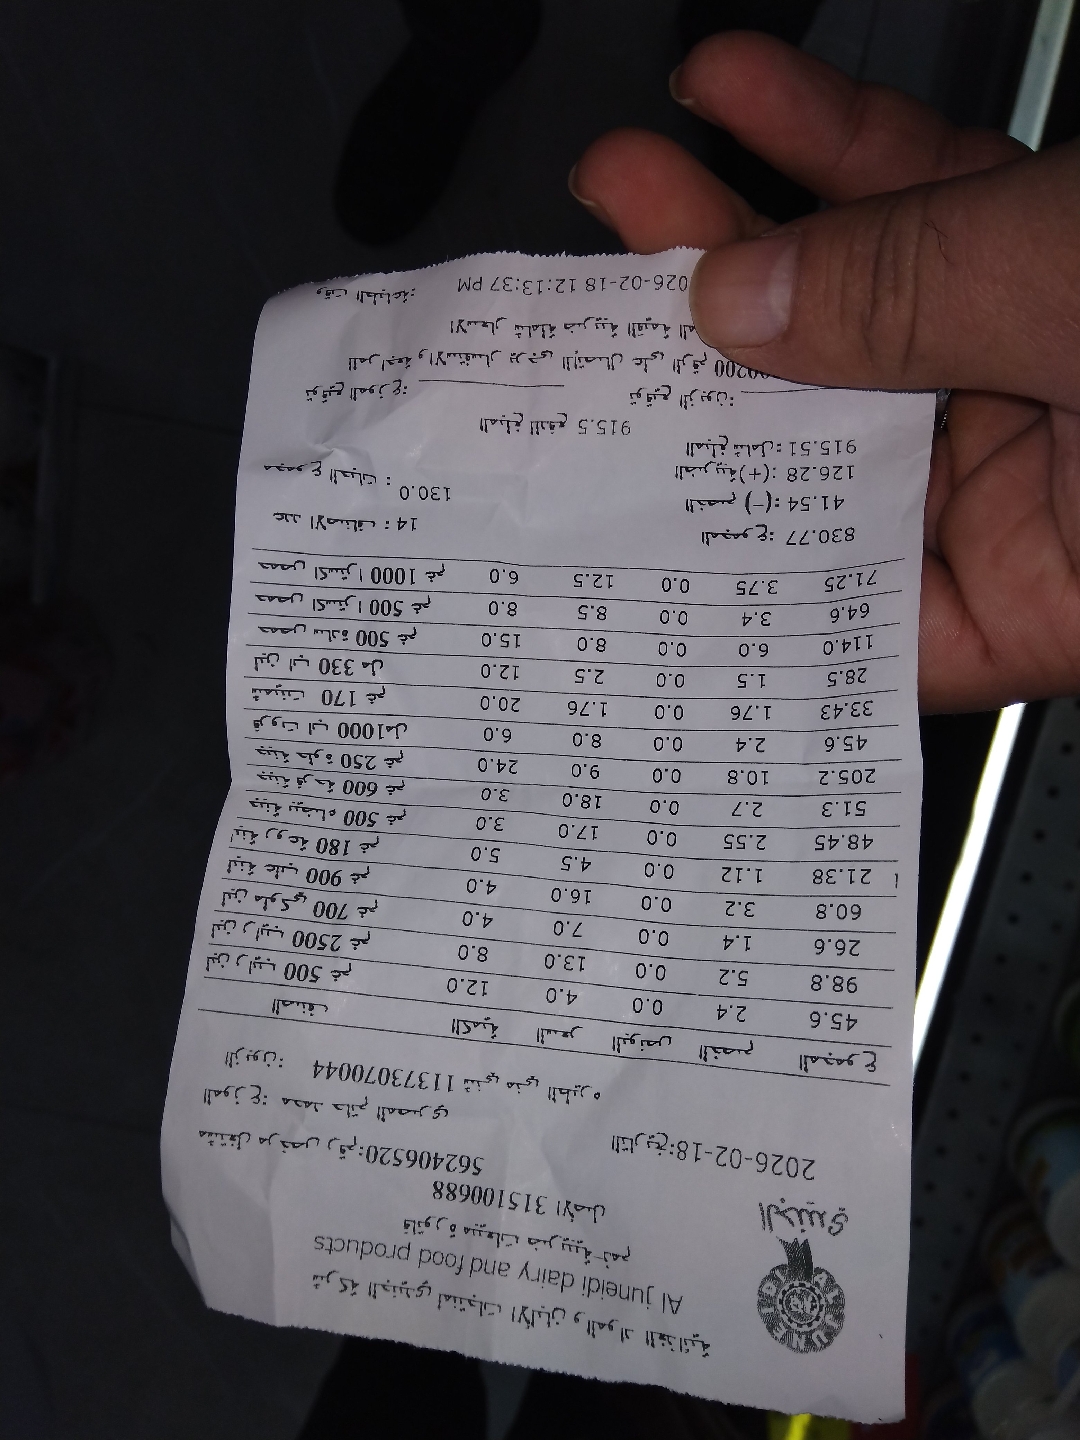 شركة الجنيدي لمنتجات الألبان والمواد الغذائية
Al juneidi dairy and food products
AL JUNEIDI
الجنيدي
فاتورة مبيعات ضريبية رقم
315100688 الأصل
مشتغل مرخص رقم: 562406520
التاريخ: 2026-02-18
الموزع: محمد حاتم المصري
الزبون: 11373070044
الصنف الكمية السعر البونص الخصم المجموع
لبن رايب 500 غم 12.0 4.0 0.0 2.4 45.6
لبن رايب 2500 غم 8.0 13.0 0.0 5.2 98.8
لبن 700 غم 4.0 7.0 0.0 1.4 26.6
لبنة علب 900 غم 4.0 16.0 0.0 3.2 60.8
لبنة روعة 180 غم 5.0 4.5 0.0 1.12 21.38
جبنة بيضاء 500 غم 3.0 17.0 0.0 2.55 48.45
جبنة فرحة 600 غم 3.0 18.0 0.0 2.7 51.3
جبنة حلوة 250 غم 24.0 9.0 0.0 10.8 205.2
فروت اب 1000مل 6.0 8.0 0.0 2.4 45.6
شمينت 170 غم 20.0 1.76 0.0 1.76 33.43
لبن اب 330 مل 12.0 2.5 0.0 1.5 28.5
حمص سادة 500 غم 15.0 8.0 0.0 6.0 114.0
حمص اكسترا 500 غم 8.0 8.5 0.0 3.4 64.6
حمص اكسترا 1000 غم 6.0 12.5 0.0 3.75 71.25
المجموع: 830.77
عدد الاصناف : 14
الخصم (-): 41.54
مجموع الحبات : 130.0
الضريبة(+): 126.28
المبلغ شامل: 915.51
المبلغ للدفع 915.5
توقيع الموزع: توقيع الزبون:
للمراجعة والاستفسار يرجى الاتصال على الرقم
الاسعار شاملة ضريبة القيمة
وقت الطباعة: 026-02-18 12:13:37 PM